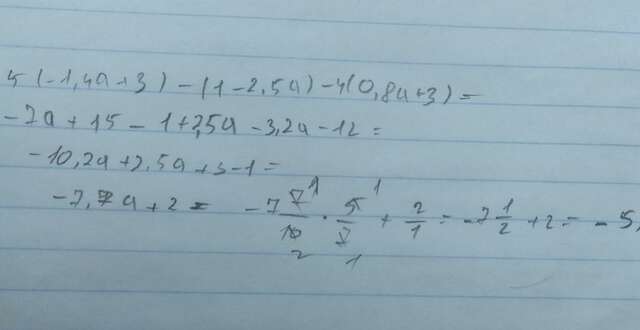 5(-1,4a+3)-(1-2,5a)-4(0,8a+3)=
-7a+15-1+2,5a-3,2a-12=
-10,2a+2,5a+3-1=
-7,7a+2= -7 7/10 · 5/7 + 2/1 = -7 1/2 +2= -5,